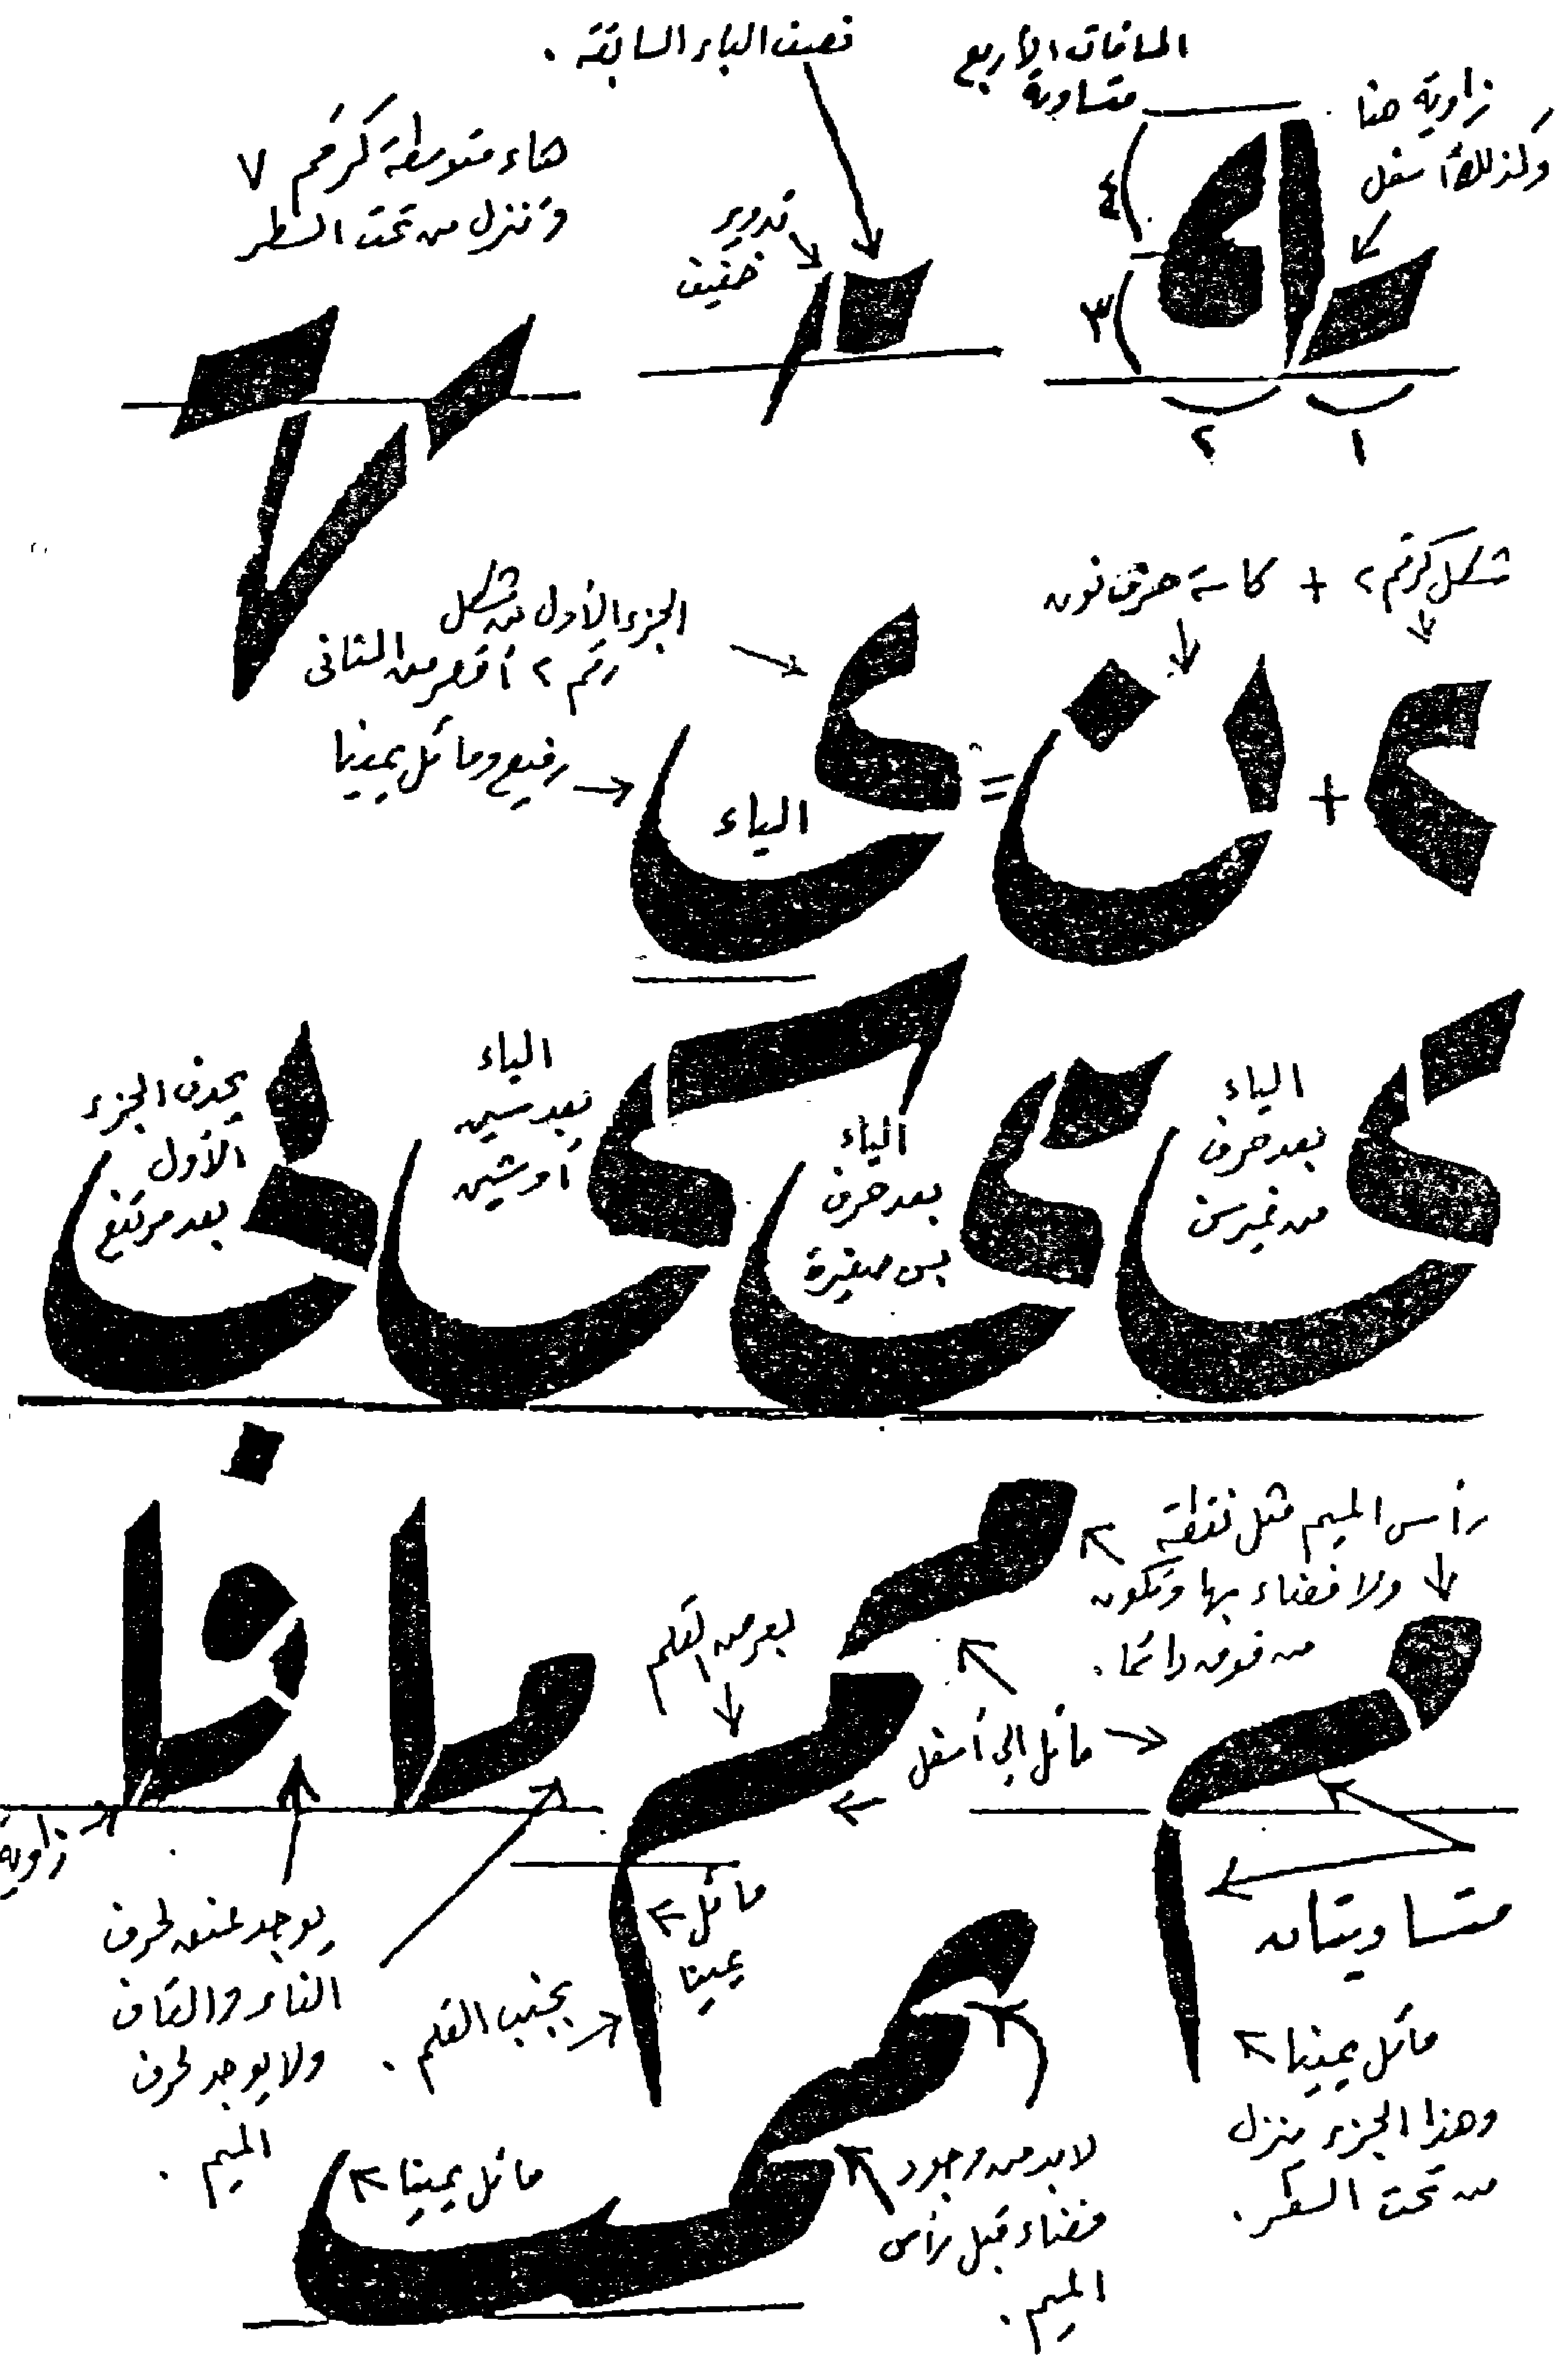 زاوية هنا
وكذلك أسفل
المسافات الأربع
متساوية
٤
٣
٢
١
نصف الباء السابقة .
تدوير
خفيف
هاء متوسطة كرقم ٧
وتنزل من تحت السطر
شكل كرقم ٢ + كاسة حرف نون
٢ + ن = ى
الجزء الأول من شكل
رقم ٢ أقصر من الثانى
رفيع ومائل يمينا
الياء
الياء
بعد حرف
من غير سن
الياء
بعد حرف
بس صغيرة
الياء
بعد سين
أو شين
يحذف الجزء
الأول
بعد مرتفع
رأس الميم مثل نقطة
ولا فضاء بها وتكون
من فوق دائما .
مائل إلى أسفل
بعرض القلم
متساويتان
مائل يمينا
وهذا الجزء ينزل
من تحت السطر .
مائل
يمينا
بجنب القلم .
ما فا
زاوية
يوجد عنق لحرف
الفاء والقاف
ولا يوجد لحرف
الميم .
مائل يمينا
لابد من وجود
فضاء قبل رأس
الميم .